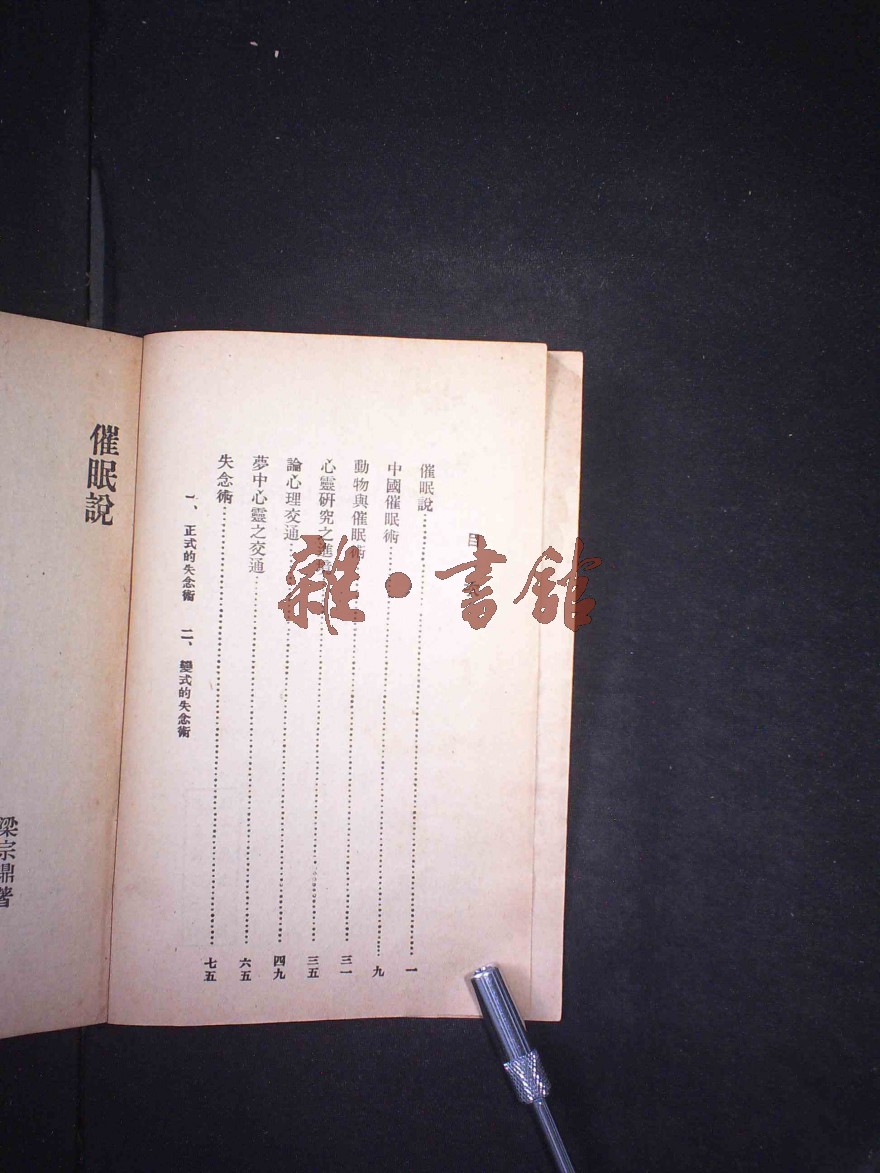 目
催眠說……一
中國催眠術……九
動物與催眠術……三一
心靈研究之進……三五
論心理交通……四九
夢中心靈之交通……六五
失念術……七五
一、正式的失念術 二、變式的失念術
催眠說
梁宗鼎著
雜·書館